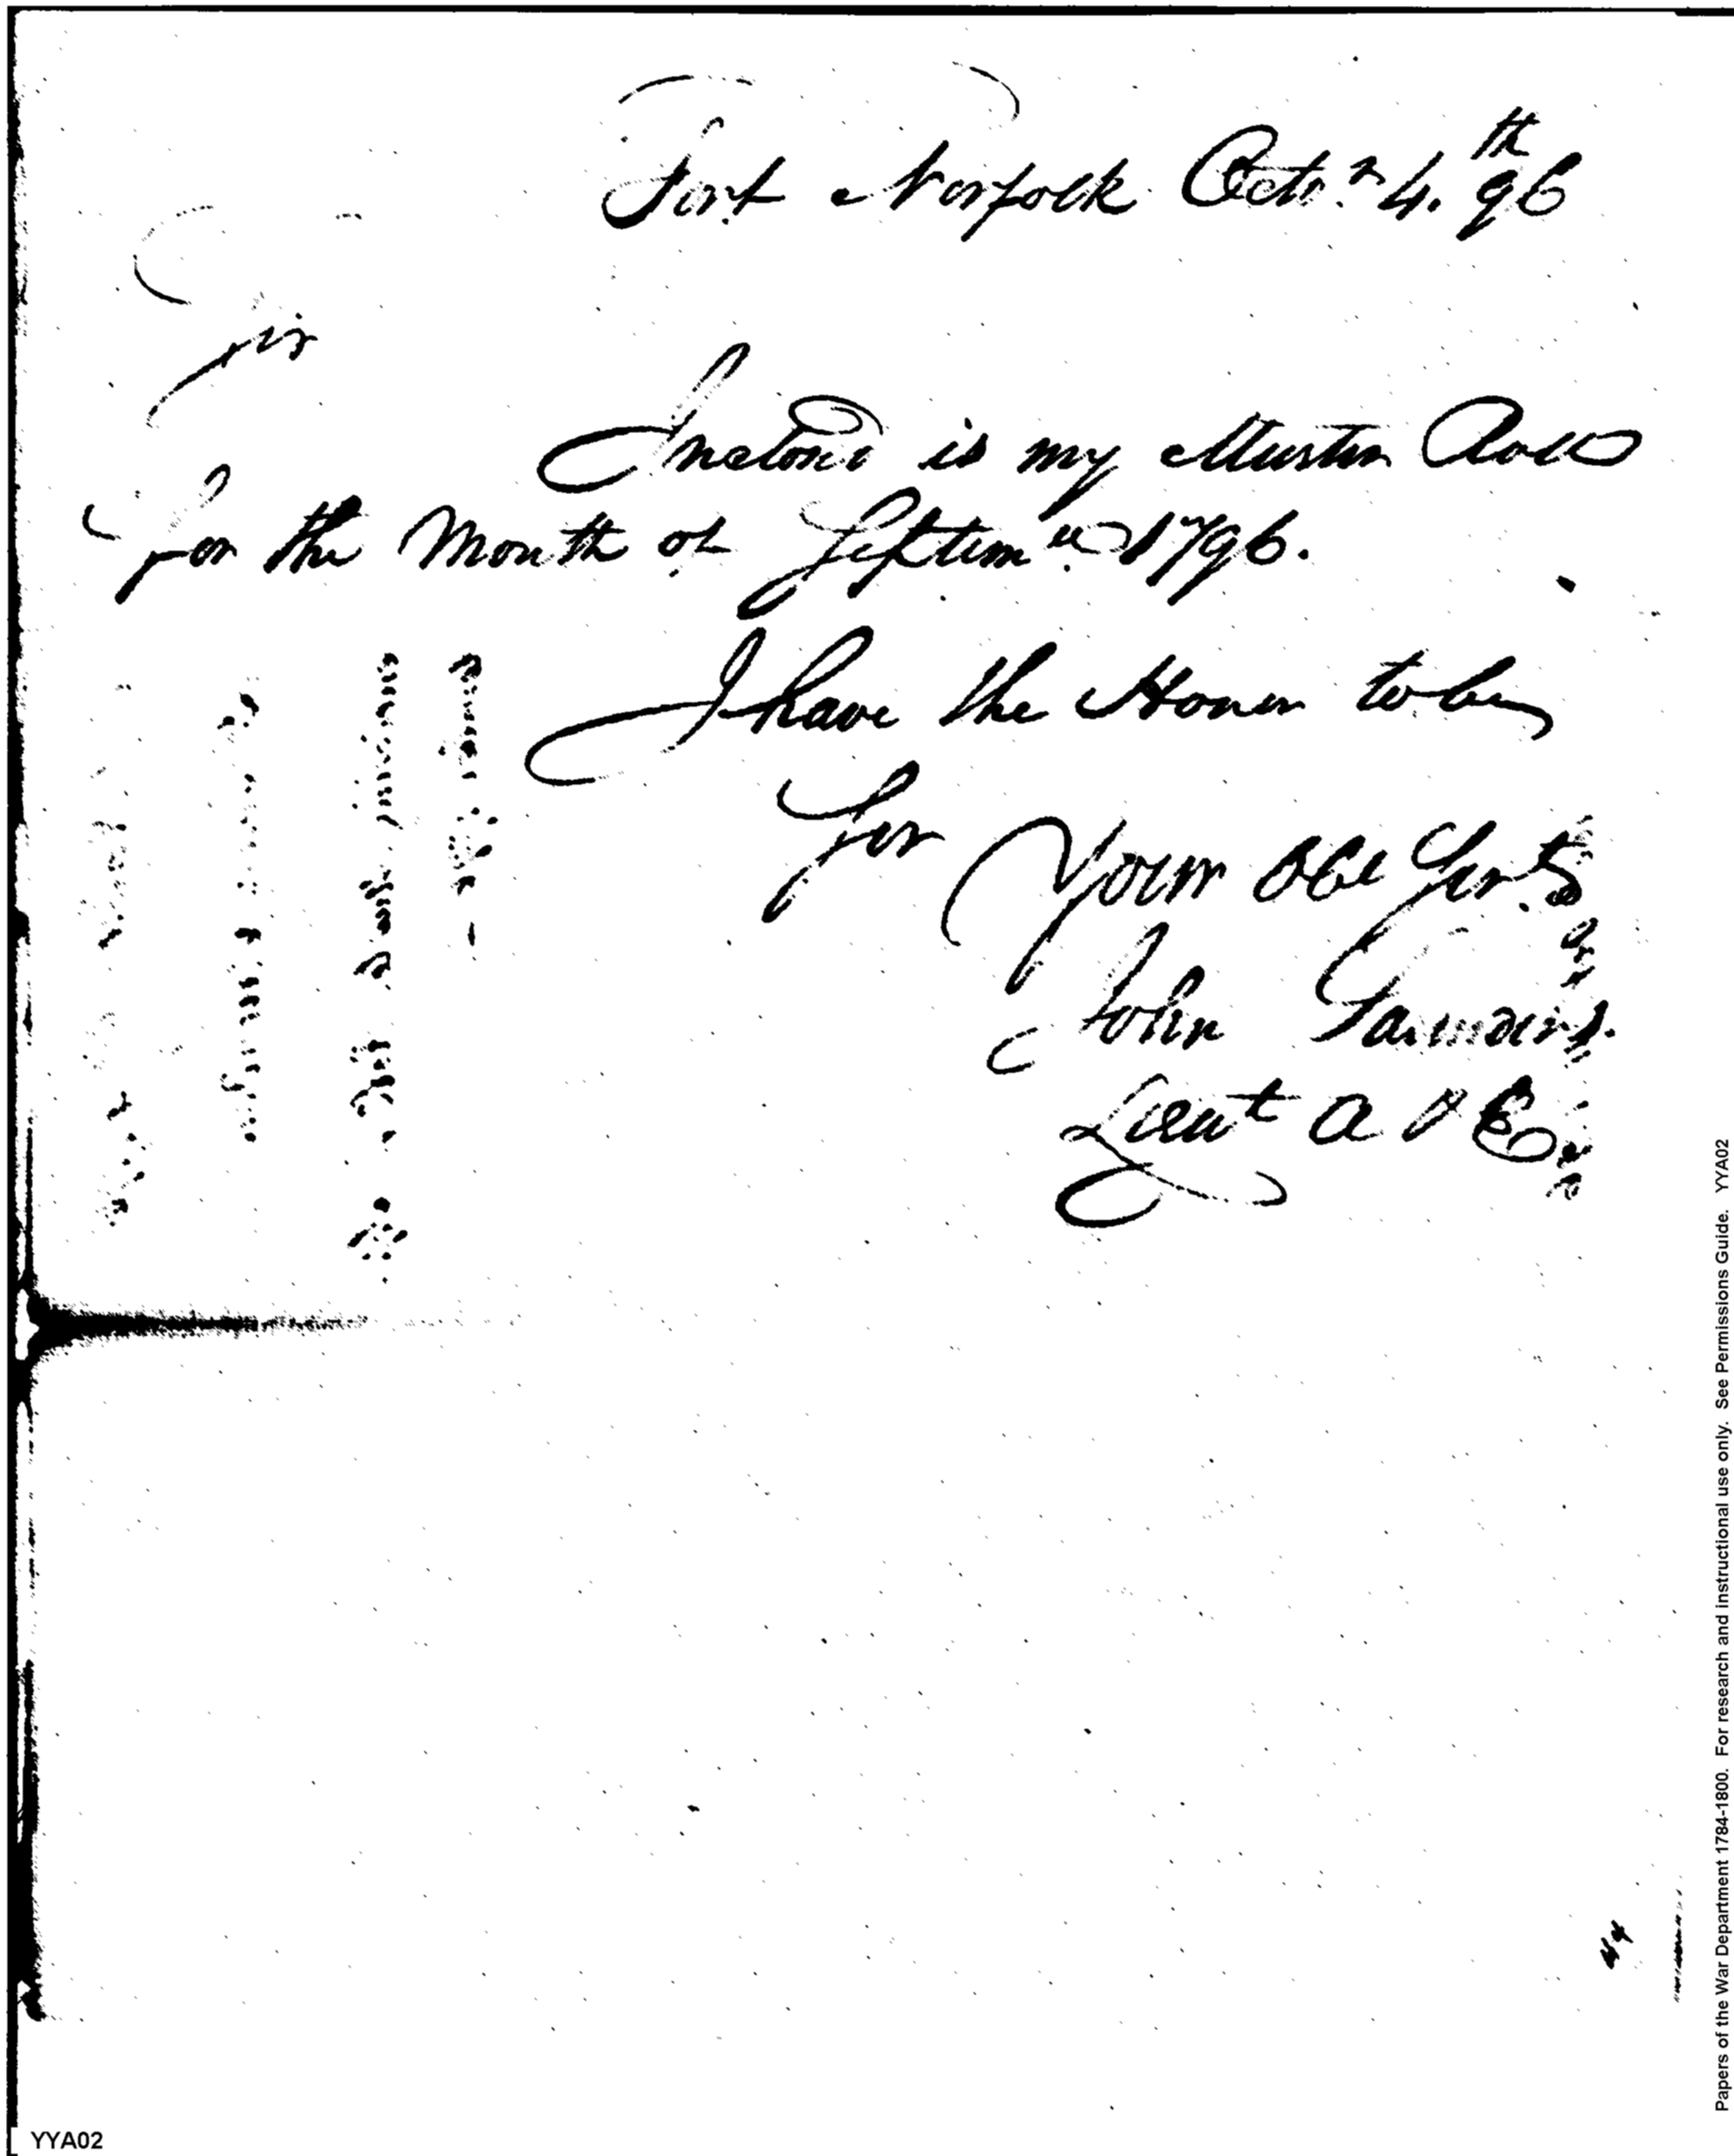 Fort Norfolk Octo.r 4.th 96
Sir
Inclosd is my Muster Roll
for the Month of Septem.er 1796.
I have the Honor to be
Sir Your obt Ser.t
John Saunders.
Lieut A & E
44
Papers of the War Department 1784-1800. For research and instructional use only. See Permissions Guide. YYA02
YYA02